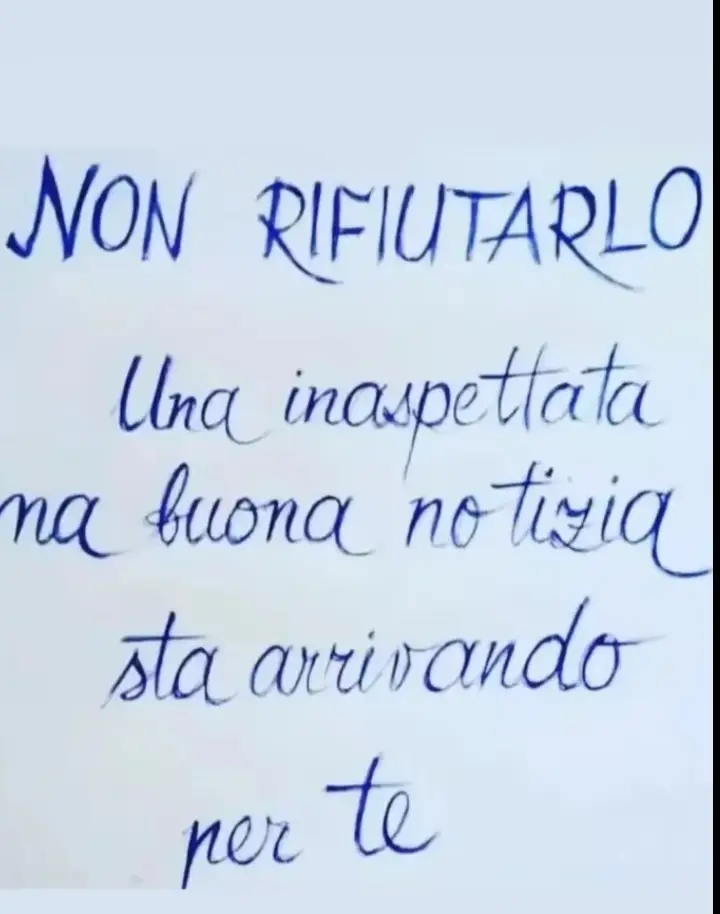 NON RIFIUTARLO
Una inaspettata
ma buona notizia
sta arrivando
per te